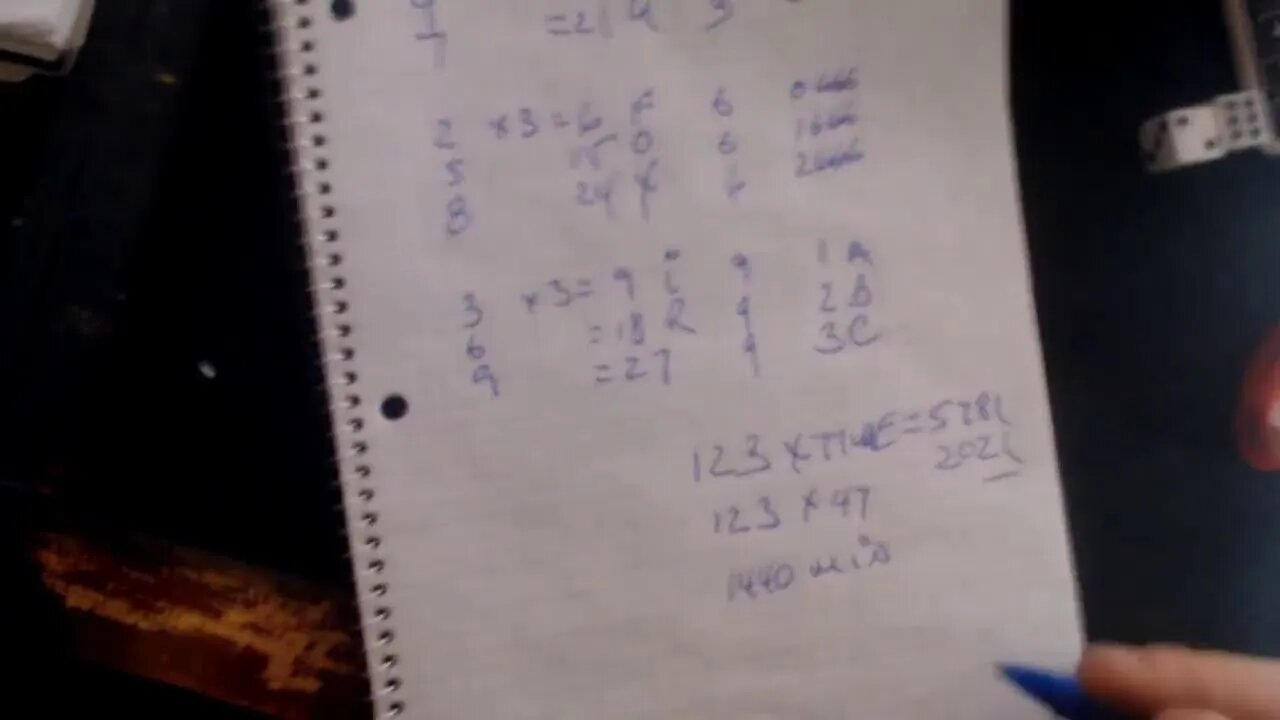 7 =21 U 3
2 ×3 =6 F 6 0666
5 15 O 6 1666
8 24 X 6 2666
3 ×3= 9 i 9 1 A
6 =18 R 9 2 B
9 =27 9 3 C
123 × TIME =
202
123 × 47
1440 min